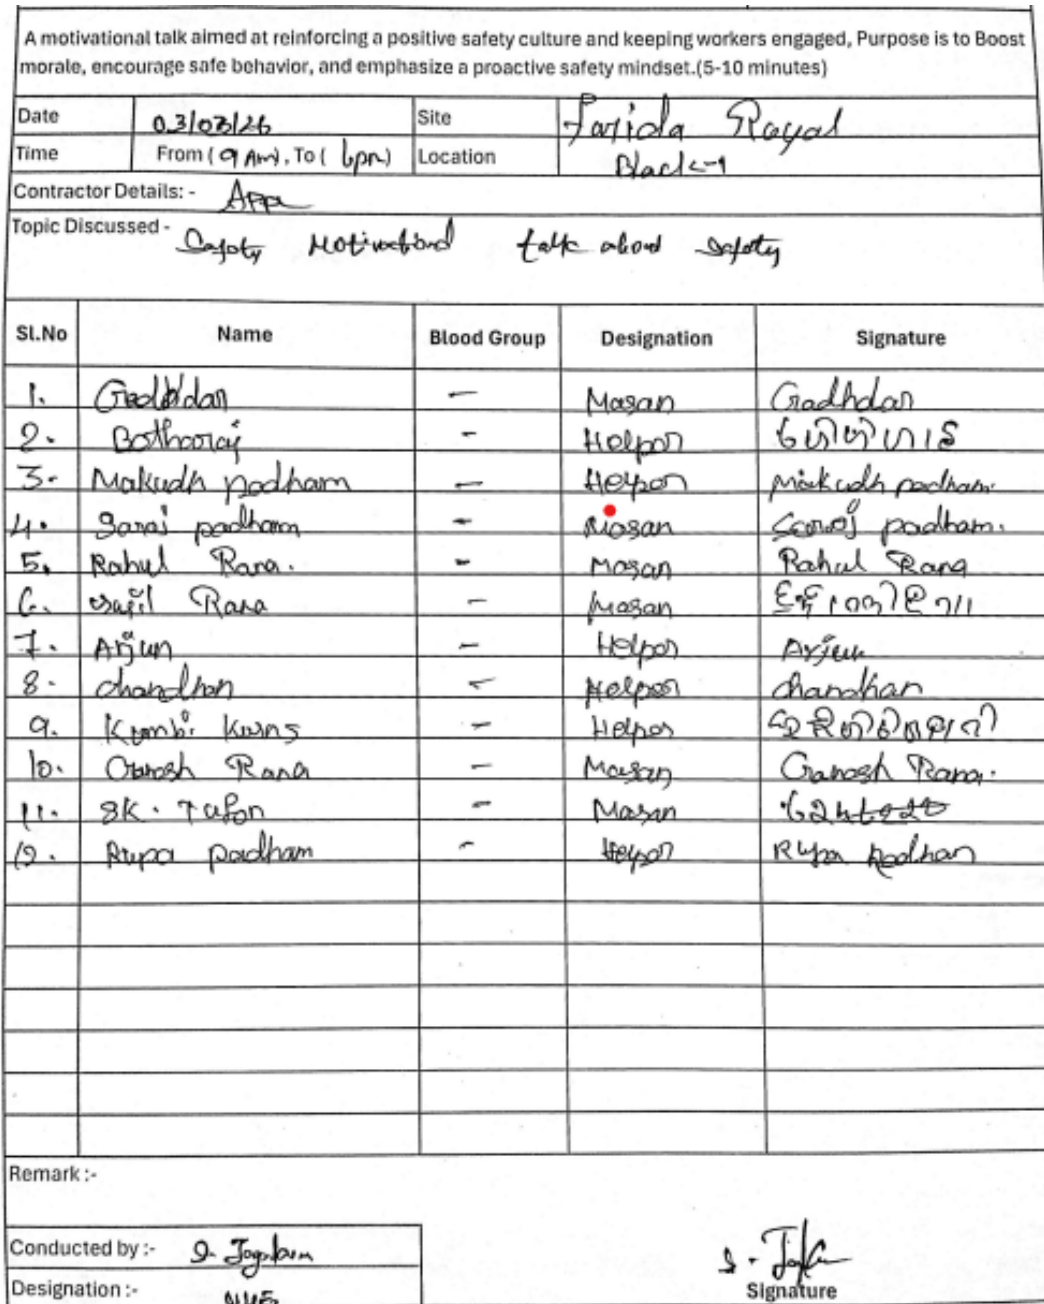 A motivational talk aimed at reinforcing a positive safety culture and keeping workers engaged, Purpose is to Boost
morale, encourage safe behavior, and emphasize a proactive safety mindset.(5-10 minutes)
Date 03/03/26 Site Farida Royal
Time From (9 Am), To ( 6pm) Location Block-1
Contractor Details: -
Topic Discussed - Safety Motivational talk about Safety
Sl.No Name Blood Group Designation Signature
1. - Masan Gadhdar
2. Bothoraj - Helper
3. Makudh padham - Helper Makudh padham.
4. Saroj padham - Masan Saroj padham.
5. Rahul Rana. - Masan Rahul Rana
6. Rana - Masan
7. Arjun - Helper Arjun
8. chandhan - Helper chandhan
9. Kumbi - Helper
10. Ganesh Rana - Masan Ganesh Rana.
11. SK. - Masan
12. Rupa padham - Helper Rupa Padhan
Remark :-
Conducted by :-
Designation :-
Signature